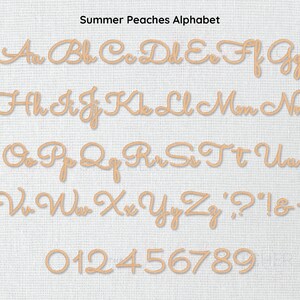 Summer Peaches Alphabet
Aa Bb Cc Dd Ee Ff Gg
Hh Ii Jj Kk Ll Mm Nn
Oo Pp Qq Rr Ss Tt Uu
Vv Ww Xx Yy Zz ' , ? " ! &
0123456789